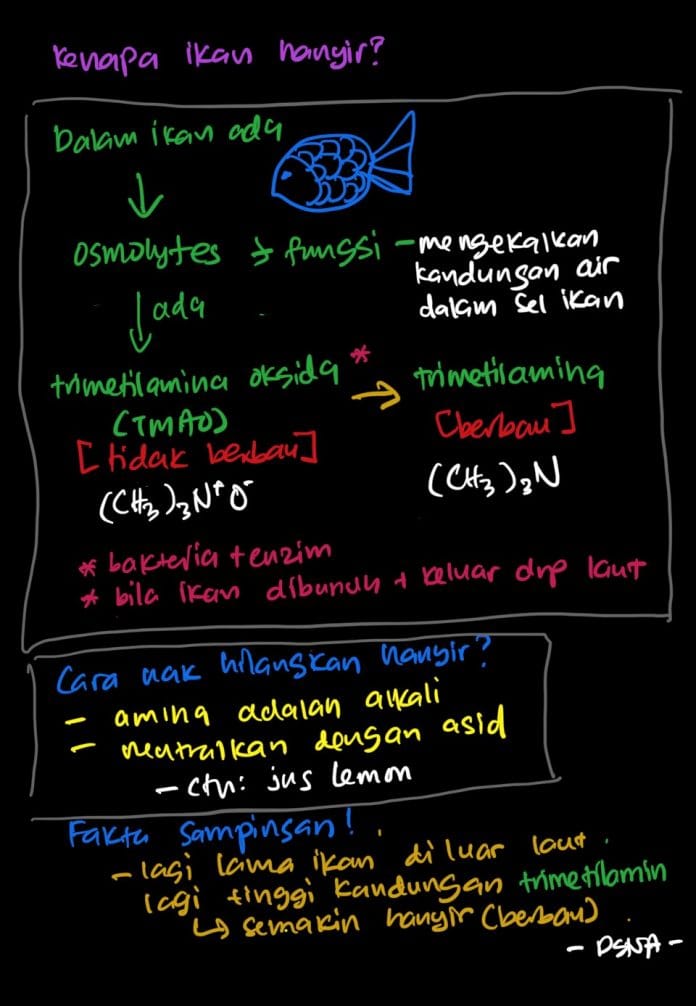 Kenapa ikan hanyir?
Dalam ikan ada
osmolytes → fungsi - mengekalkan
kandungan air
dalam sel ikan
ada
trimetilamina oksida * → trimetilamina
(TMAO) [berbau]
[tidak berbau]
(CH₃)₃N⁺O⁻ (CH₃)₃N
* bakteria + enzim
* bila ikan dibunuh + keluar drp laut
Cara nak hilangkan hanyir?
- amina adalah alkali
- neutralkan dengan asid
- cth: jus lemon
Fakta Sampingan!
- lagi lama ikan di luar laut
lagi tinggi kandungan trimetilamin
↳ semakin hanyir (berbau)
- DSNA -